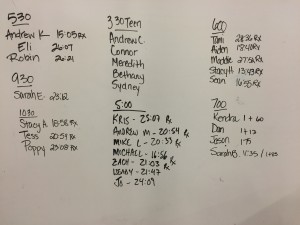 530
Andrew K 15:03 Rx
Eli 26:07
Robin 26:21
930
Sarah E. 23:12
1030
Stacy A 18:56 Rx
Tess 20:54 Rx
Poppy 25:08 Rx
3:30 Teen
Andrew C.
Connor
Meredith
Bethany
Sydney
5:00
KRIS - 25:07 Rx
ANDREW M - 20:54 Rx
MIKE L - 20:33 Rx
MICHAEL - 16:56
ZACH - 21:03 Rx
WENDY - 21:47
JO - 24:09
600
Tami 28:36 Rx
Aidan 18:40 Rx
Maddie 27:56 Rx
Stacy H 13:49 Rx
Sean 16:55 Rx
700
Kendra 1 + 60
Dan 1+13
Jason 1+35
Sarah B.